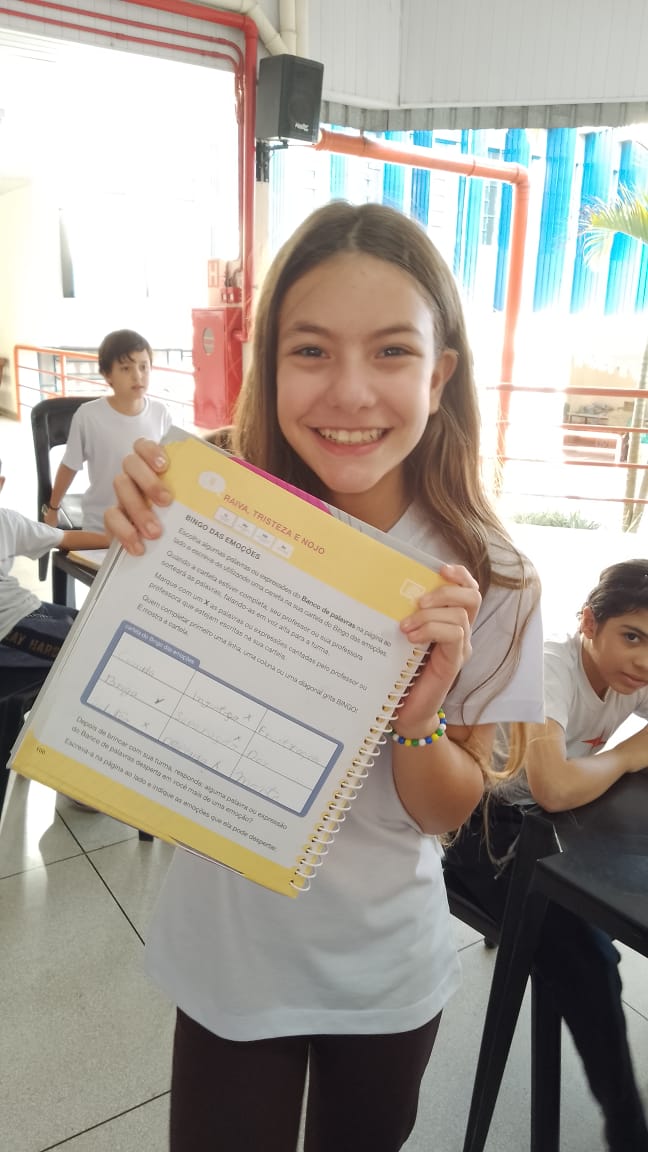 RAIVA, TRISTEZA E NOJO
BINGO DAS EMOÇÕES
Escolha algumas palavras ou expressões do Banco de palavras na página ao
lado e escreva-as utilizando uma caneta na sua cartela do Bingo das emoções.
Quando a cartela estiver completa, seu professor ou sua professora
sorteará as palavras, falando-as em voz alta para a turma.
Marque com um X as palavras ou expressões cantadas pelo professor ou
professora que estejam escritas na sua cartela.
Quem completar primeiro uma linha, uma coluna ou uma diagonal grita BINGO!
E mostra a cartela.
Cartela do Bingo das emoções
Briga
Depois de brincar com sua turma, responda: alguma palavra ou expressão
do Banco de palavras desperta em você mais de uma emoção?
Escreva-a na página ao lado e indique as emoções que ela pode despertar.
H